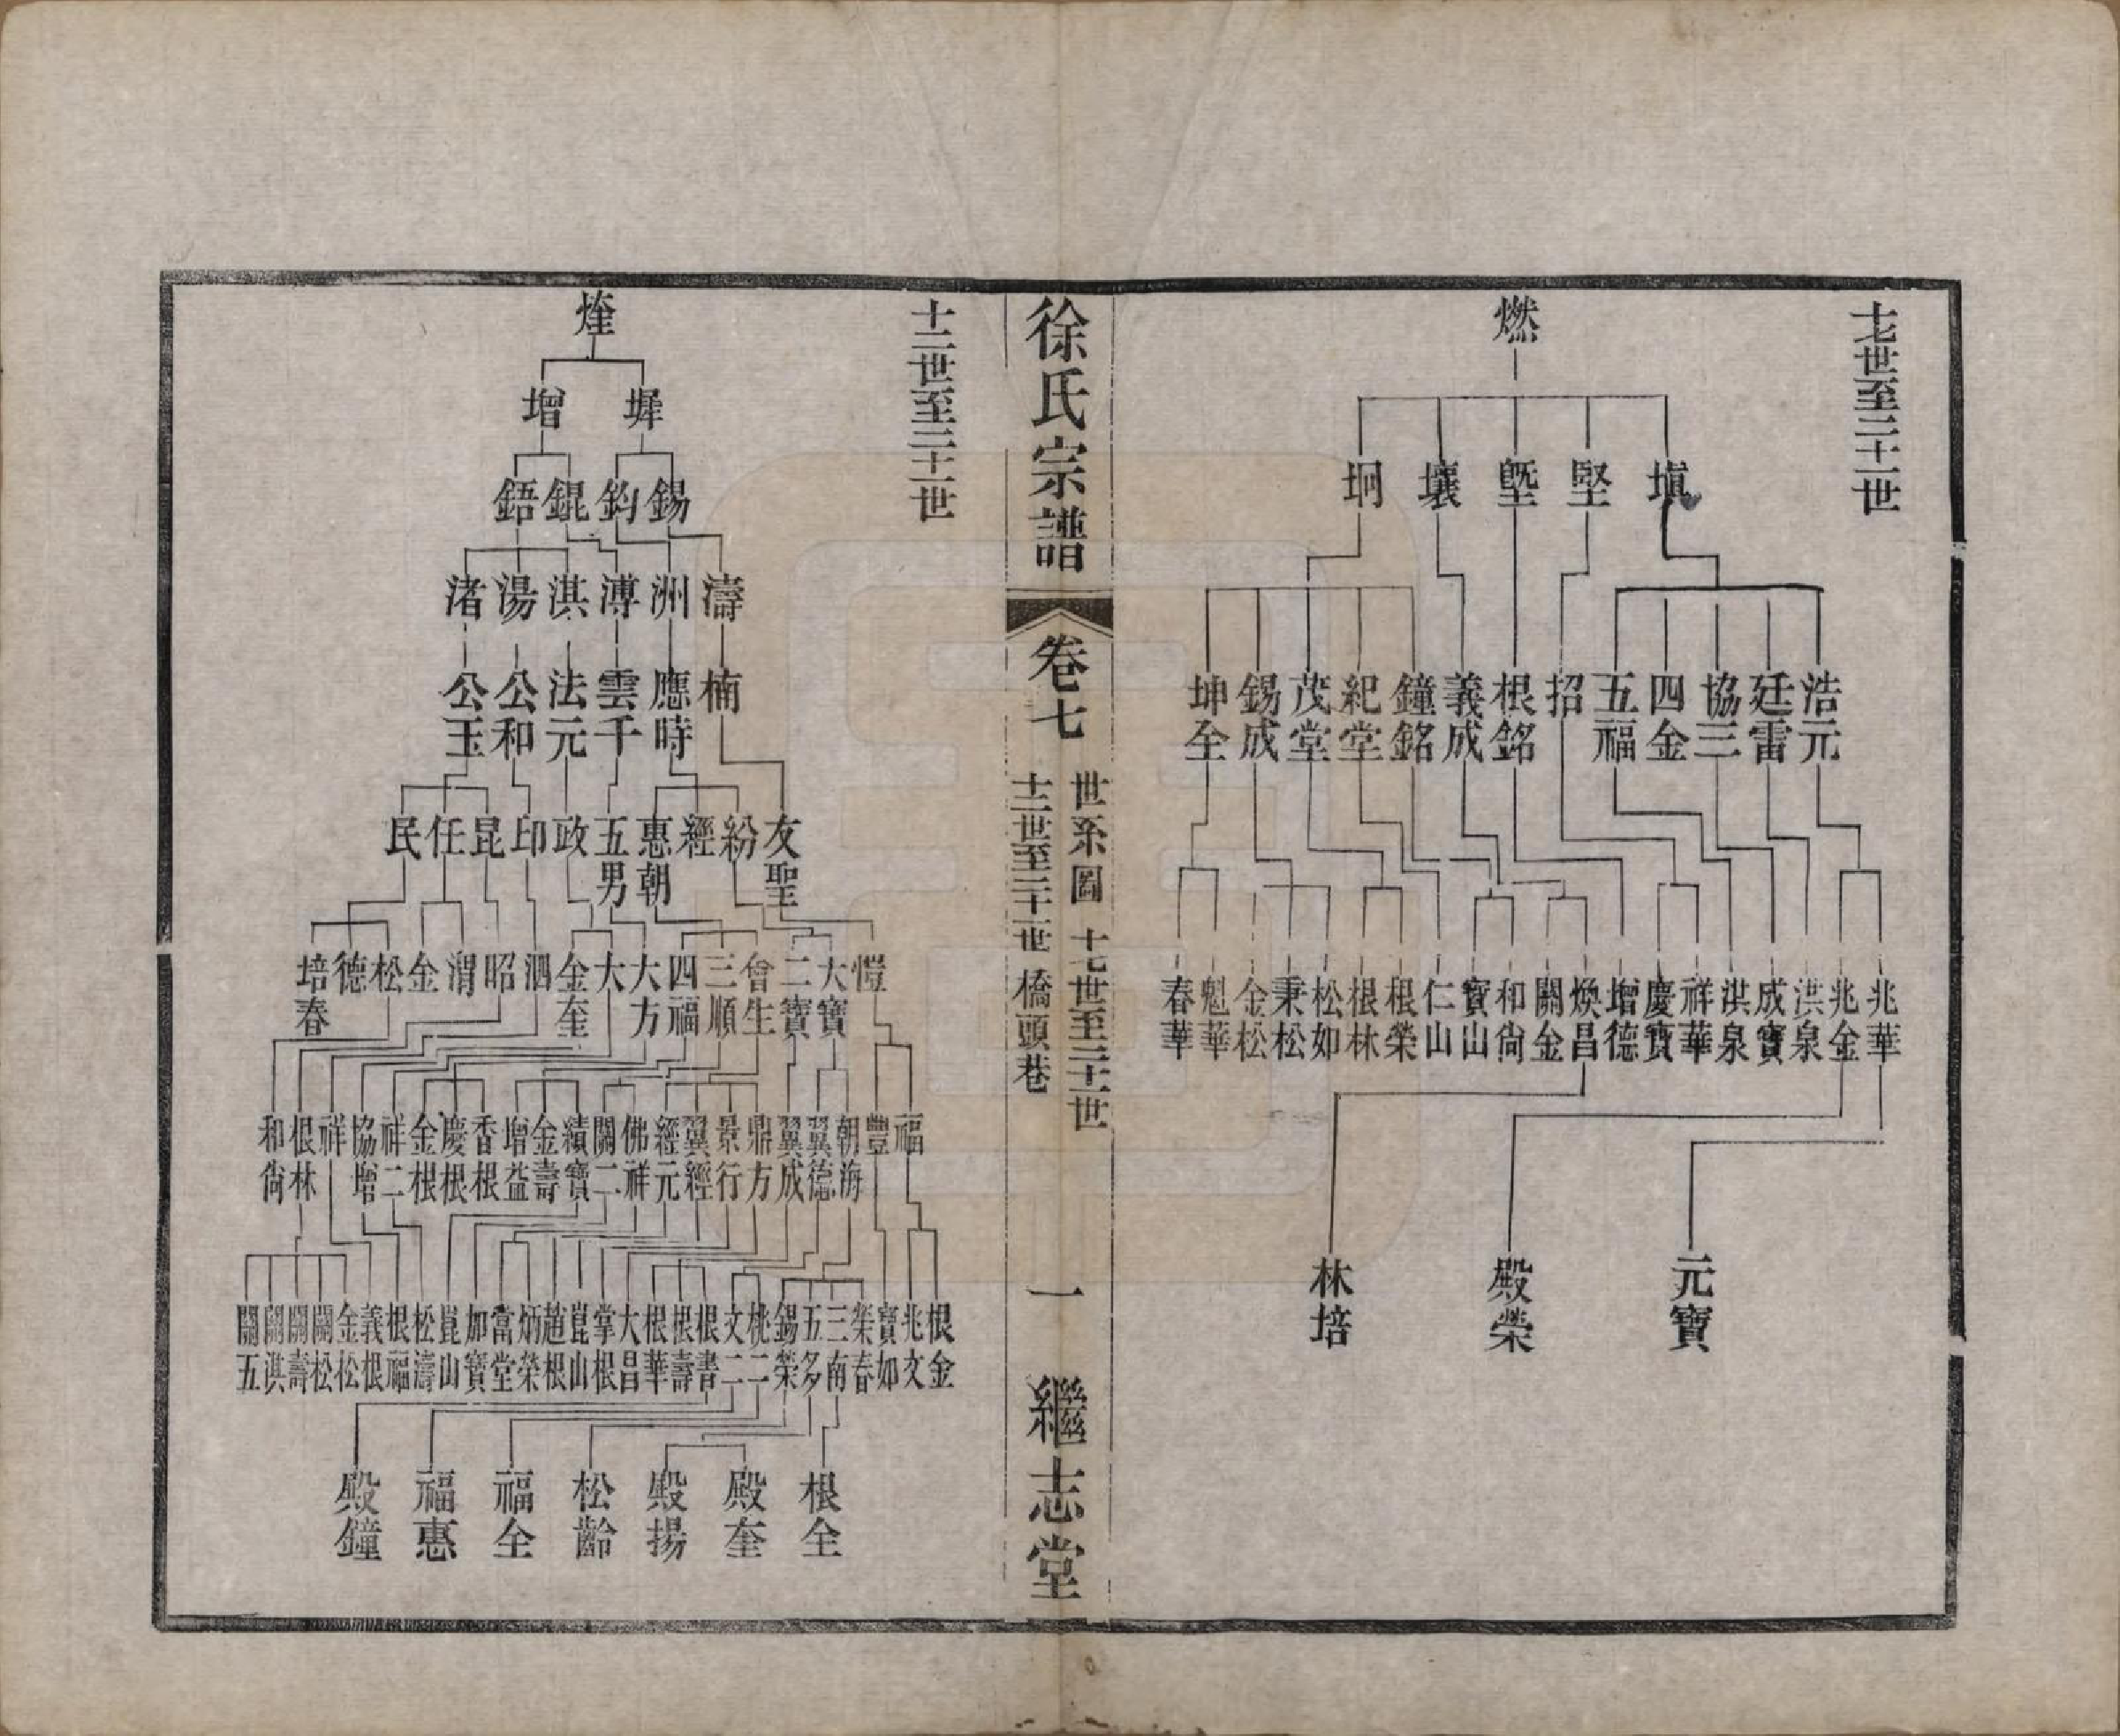 十七世至二十一世
燃
塡 堅 塈 壤 坰
浩元 廷雷 協三 四金 五福 招 根銘 義成 鐘銘 紀堂 茂堂 錫成 坤全
兆華 兆金 洪泉 成寶 洪泉 祥華 慶寶 增德 煥昌 關金 和尙 寶山 仁山 根榮 根林 松如 秉松 金松 魁華 春華
元寶 殿榮 林培
徐氏宗譜
卷七
世系圖 十七世至二十一世
十二世至二十一世 橋頭巷
一
繼志堂
十二世至二十一世
煃
墀 增
錫 鈞 錕 鋙
濤 洲 溥 淇 湯 渚
楠 應時 雲千 法元 公和 公玉
友聖 紛 經 惠朝 五男 政 印 昆 任 民
愷 大寶 二寶 曾生 三順 四福 大方 大 金奎 泗 昭 渭 金 松 德 培春
福 豐 朝海 翼德 翼成 鼎方 景行 翼經 經元 佛祥 關二 績寶 金壽 增益 香根 慶根 金根 祥二 協增 祥 根林 和尙
根金 兆文 寶如 榮春 三南 五多 錫榮 桃二 文二 根書 根壽 根華 大昌 掌根 崑山 趙根 炳榮 當堂 加寶 崑山 松濤 根福 義根 金松 關松 關壽 關淇 關五
根全 殿奎 殿揚 松齡 福全 福惠 殿鐘